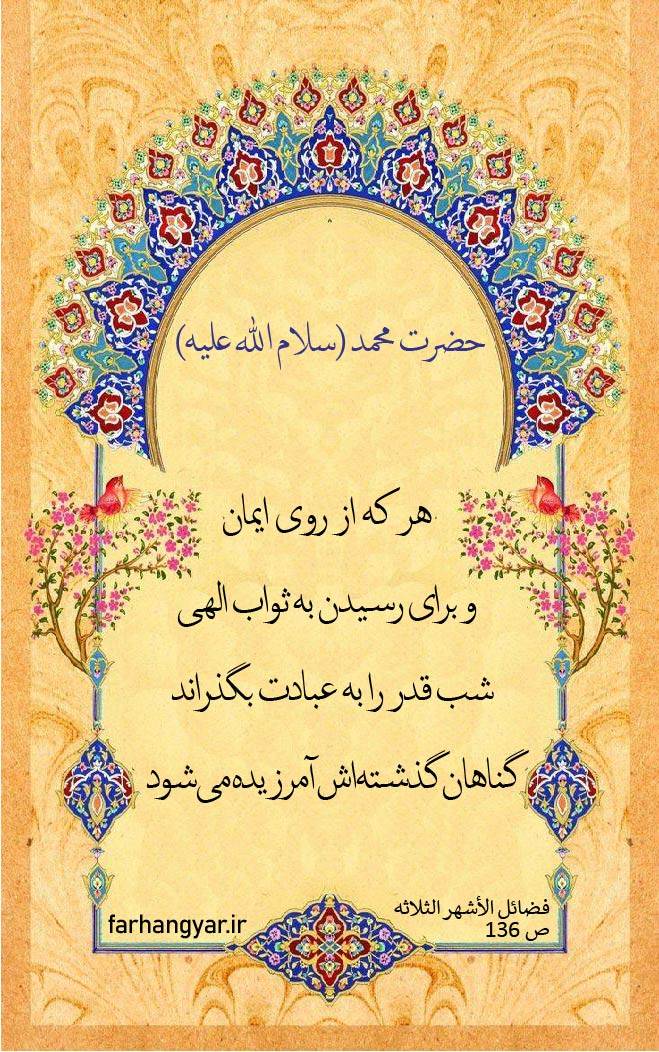 حضرت محمد (سلام الله علیه)
هر که از روی ایمان
و برای رسیدن به ثواب الهی
شب قدر را به عبادت بگذراند
گناهان گذشته‌اش آمرزیده می‌شود
فضائل الأشهر الثلاثه
ص 136
farhangyar.ir